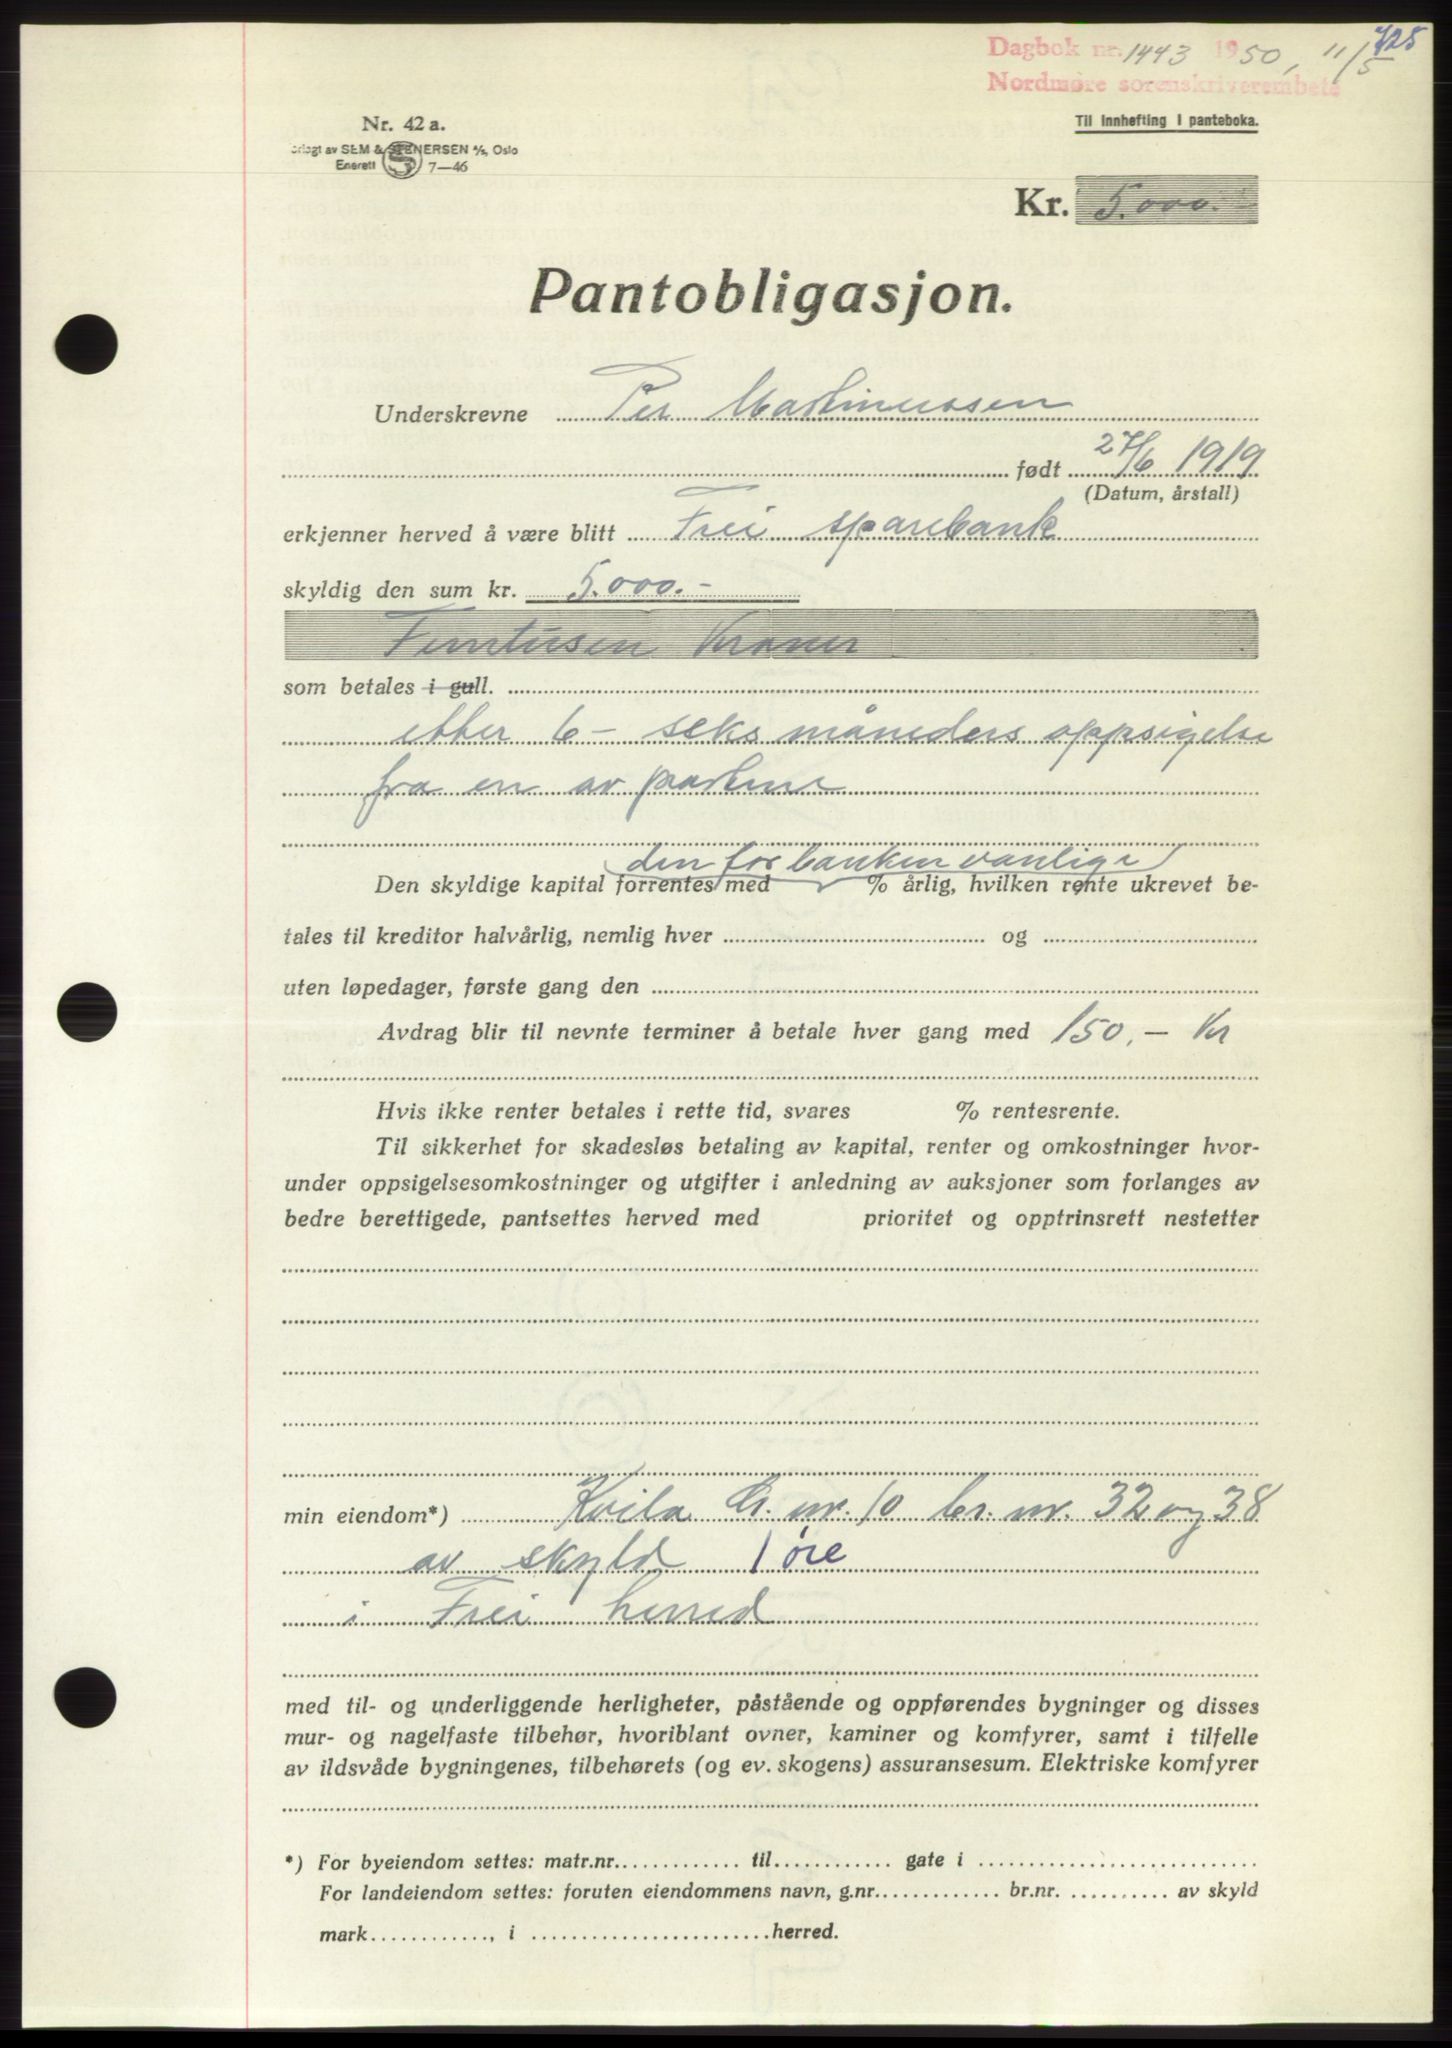 725
Dagbok nr. 1443 1950, 11/5
Nordmøre sorenskriverembete
Nr. 42 a.
Til innhefting i panteboka.
orlagt av SEM & STENERSEN A/S, Oslo
Enerett 7—46
Kr. 5.000.-
Pantobligasjon.
Underskrevne Per Martinussen
født 27/6 1919
(Datum, årstall)
erkjenner herved å være blitt Frei sparebank
skyldig den sum kr. 5.000.-
Femtusen Kroner
som betales i gull.
etter 6 - seks måneders oppsigelse
fra en av partene
den for banken vanlige
Den skyldige kapital forrentes med % årlig, hvilken rente ukrevet be-
tales til kreditor halvårlig, nemlig hver og
uten løpedager, første gang den
Avdrag blir til nevnte terminer å betale hver gang med 150,- Kr
Hvis ikke renter betales i rette tid, svares % rentesrente.
Til sikkerhet for skadesløs betaling av kapital, renter og omkostninger hvor-
under oppsigelsesomkostninger og utgifter i anledning av auksjoner som forlanges av
bedre berettigede, pantsettes herved med prioritet og opptrinsrett nestetter
min eiendom*) Kvila Gr. nr. 10 br. nr. 32 og 38
av skyld 1 øre
i Frei herred
med til- og underliggende herligheter, påstående og oppførendes bygninger og disses
mur- og nagelfaste tilbehør, hvoriblant ovner, kaminer og komfyrer, samt i tilfelle
av ildsvåde bygningenes, tilbehørets (og ev. skogens) assuransesum. Elektriske komfyrer
*) For byeiendom settes: matr.nr. til gate i
For landeiendom settes: foruten eiendommens navn, g.nr. br.nr. av skyld
mark , i herred.